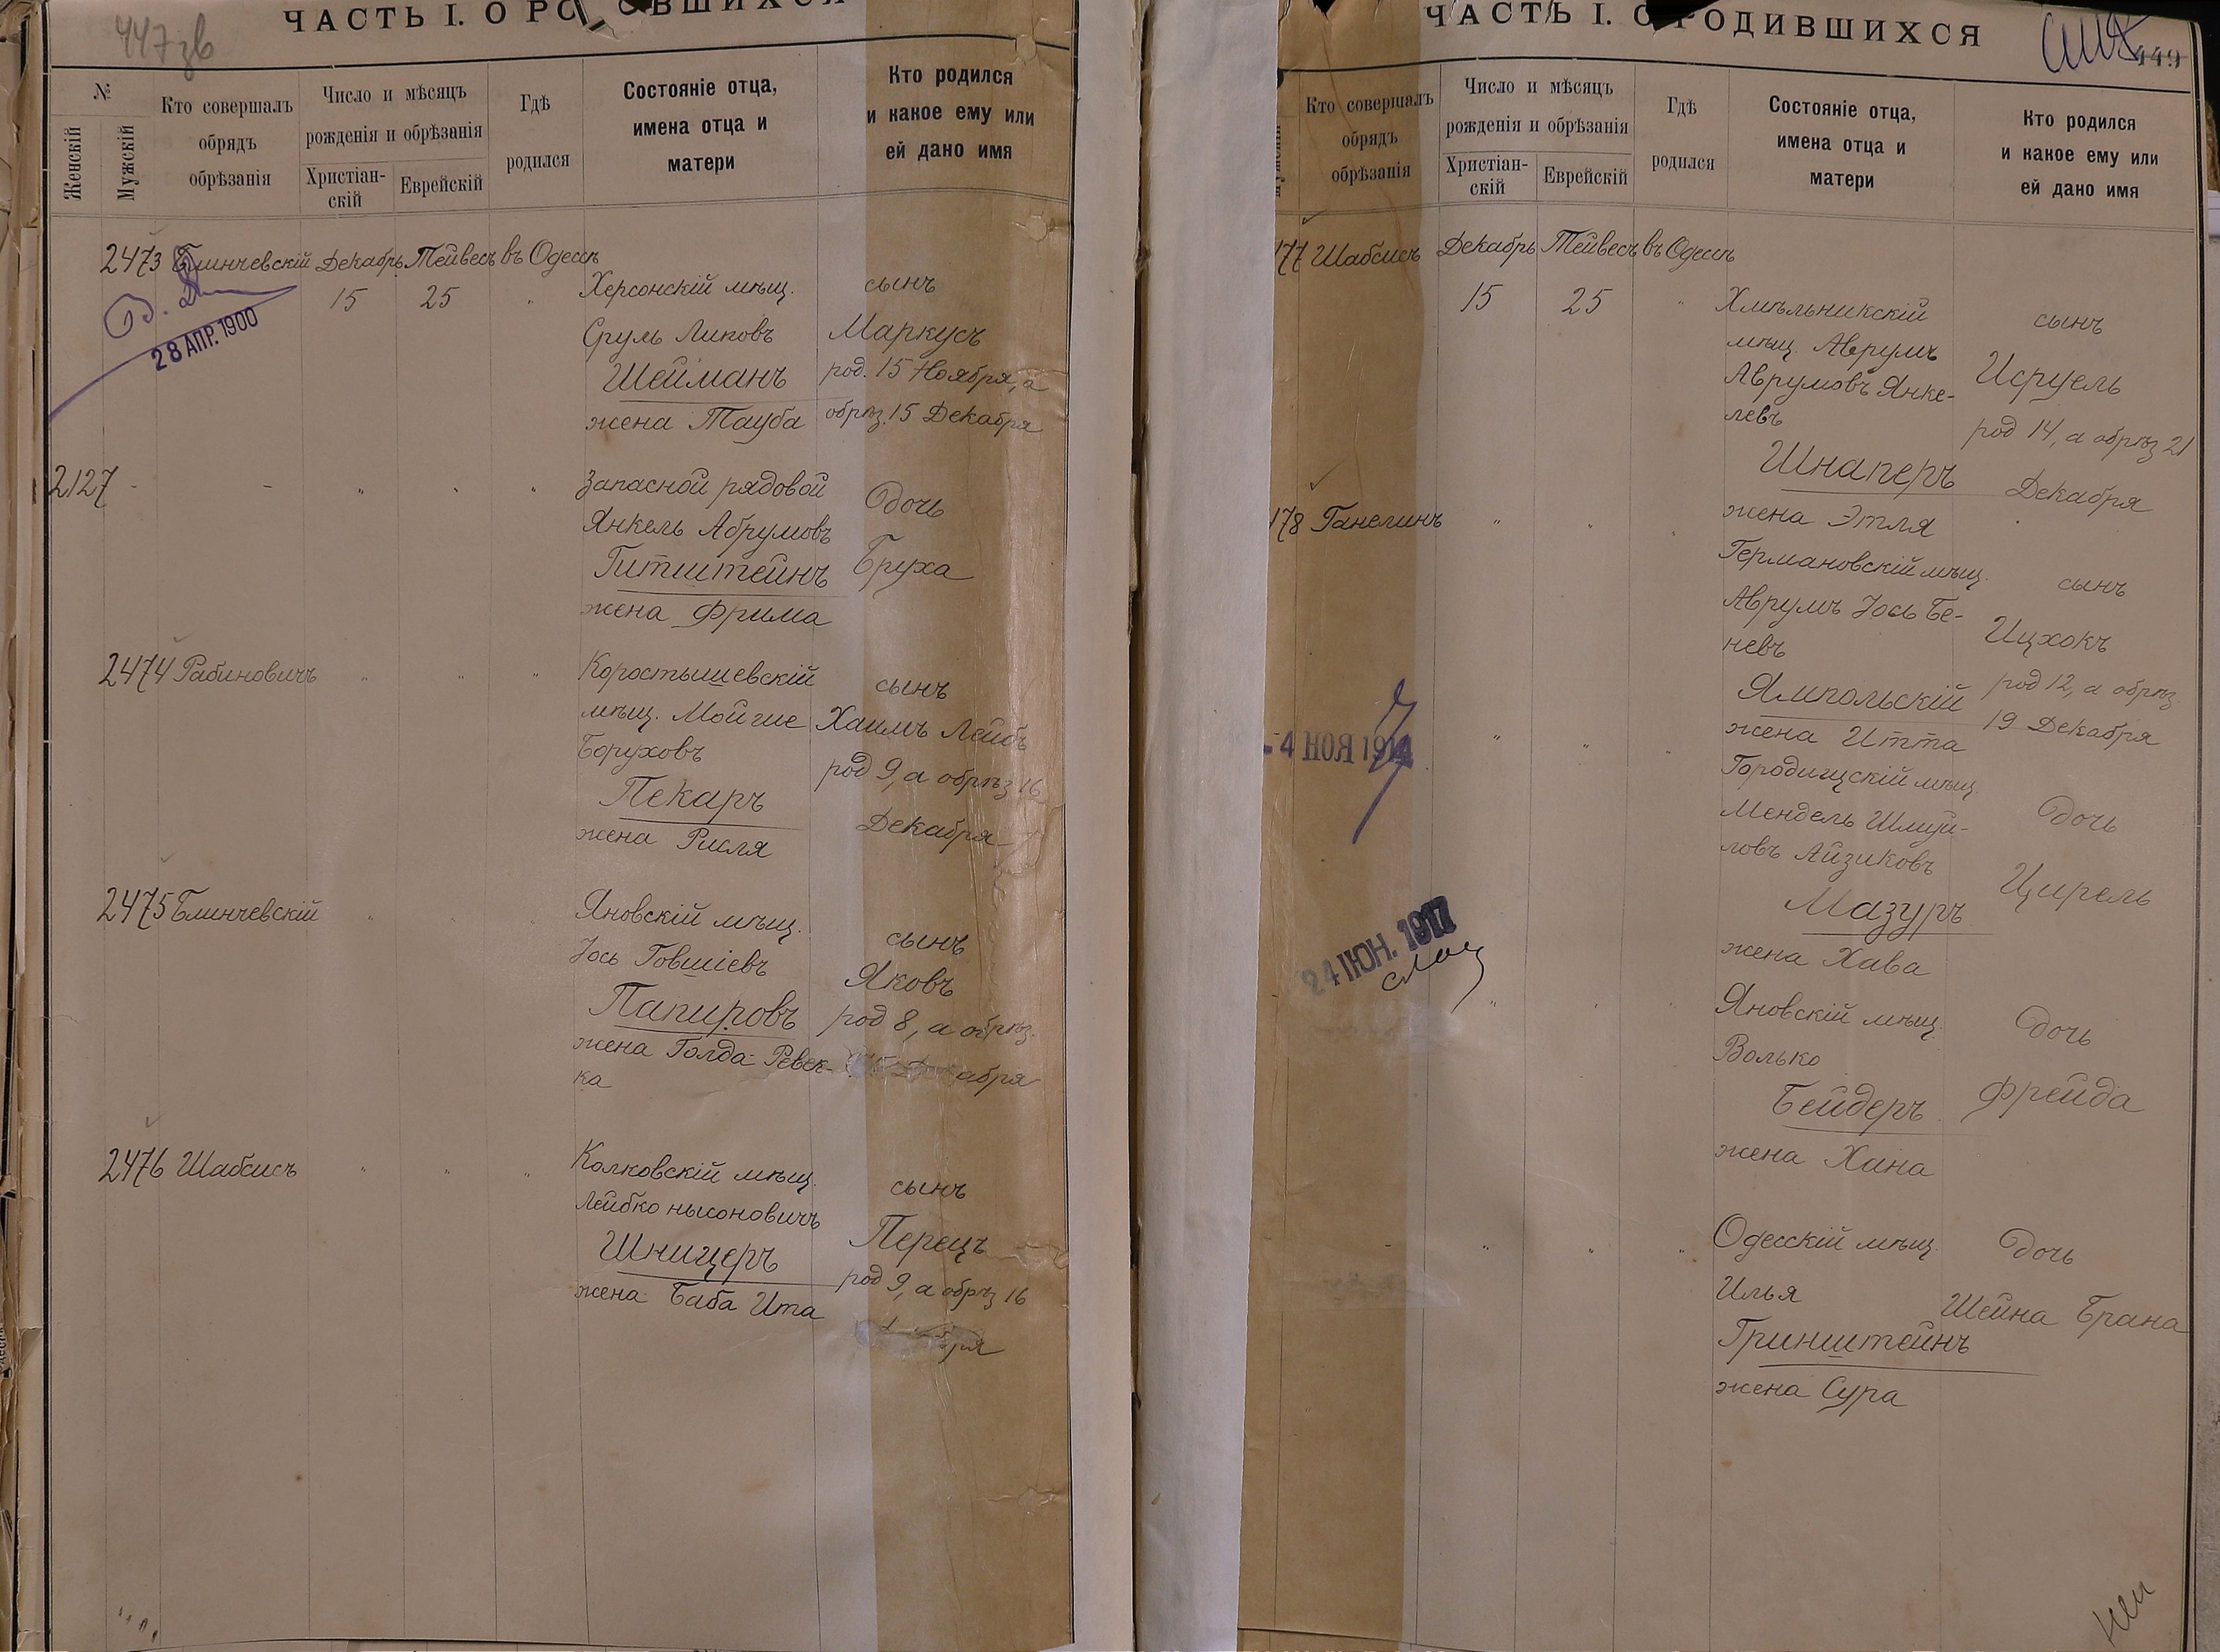 447 зв
ЧАСТЬ I. О РО
ВШИХСЯ
№
Женскій
Мужскій
Кто совершалъ
обрядъ
обрѣзанія
Число и мѣсяцъ
рожденія и обрѣзанія
Христіан-
скій
Еврейскій
Гдѣ
родился
Состояніе отца,
имена отца и
матери
Кто родился
и какое ему или
ей дано имя
2473 Блинчевскій Декабрь Тейвесъ въ Одессѣ
15 25 "
28 АПР. 1900
Херсонскій мѣщ.
Сруль Липовъ
Шейманъ
жена Тауба
сынъ
Маркусъ
род. 15 Ноября, а
обрѣз. 15 Декабря
2127 - - " " "
Запасной рядовой
Янкель Абрумовъ
Гитштейнъ
жена Фрима
дочь
Бруха
2474 Рабиновичъ " " "
Коростышевскій
мѣщ. Мойше
Боруховъ
Пекаръ
жена Рисля
сынъ
Хаимъ Лейбъ
род 9, а обрѣз 16
Декабря
2475 Блинчевскій " " "
Яновскій мѣщ.
Іось Говшіевъ
Папировъ
жена Голда-Ревек-
ка
сынъ
Яковъ
род 8, а обрѣз.
15 Декабря
2476 Шабсисъ " " "
Колковскій мѣщ.
Лейбко Нысоновичъ
Шницеръ
жена Баба Ита
сынъ
Перецъ
род 9, а обрѣз 16
ря
ЧАСТЬ I. О РОДИВШИХСЯ
449
Кто совершалъ
обрядъ
обрѣзанія
Число и мѣсяцъ
рожденія и обрѣзанія
Христіан-
скій
Еврейскій
Гдѣ
родился
Состояніе отца,
имена отца и
матери
Кто родился
и какое ему или
ей дано имя
177 Шабсисъ Декабрь Тейвесъ въ Одессѣ
15 25 "
Хмѣльникскій
мѣщ. Аврумъ
Аврумовъ Янке-
левъ
Шнаперъ
жена Этля
сынъ
Исруель
род 14, а обрѣз 21
Декабря
178 Ганелинъ " " "
Германовскій мѣщ.
Аврумъ Іось Бе-
невъ
Ямпольскій
жена Итта
сынъ
Ицхокъ
род 12, а обрѣз.
19 Декабря
- 4 НОЯ 1914
" " "
Городищскій мѣщ.
Мендель Шмуй-
ловъ Айзиковъ
Мазуръ
жена Хава
дочь
Цирель
24 ІЮН. 1917
" " "
Яновскій мѣщ.
Волько
Бейдеръ
жена Хана
дочь
Фрейда
- " " "
Одесскій мѣщ.
Илья
Гринштейнъ
жена Сура
дочь
Шейна Брана